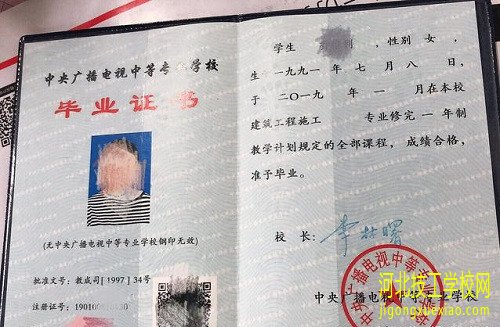 中央广播电视中等专业学校
毕业证书
(无中央广播电视中等专业学校钢印无效)
批准文号：教成司 [1997] 34号
注册证号：190100
学生 ，性别 女，
生 一九九一 年 七 月 八 日，
于 二〇一九 年 一 月在本校
建筑工程施工 专业修完 一 年制
教学计划规定的全部课程，成绩合格，
准予毕业。
校 长：李林曙
中央广播电视中等专业学校
河北技工学校网
jigongxuexiao.com